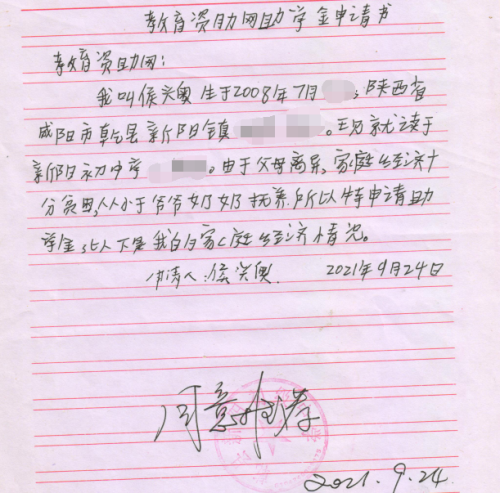 教育资助网助学金申请书
教育资助网:
我叫侯兴奥生于2008年7月;陕西省
咸阳市乾县新阳镇。现就读于
新阳初中。由于父母离异,家庭经济十
分贫困,从小于爷爷奶奶抚养.所以特申请助
学金,以下是我的家庭经济情况。
申请人:侯兴奥 2021年9月24日
同意推荐
2021.9.24